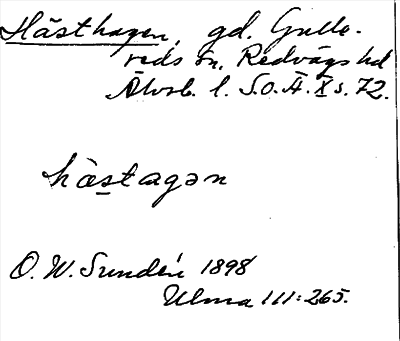 Hästhagen, gd. Gulle-
reds sn, Redvägs hd
Älvsb. l. S.O.Ä. X s. 72.
hästagən
O. W. Sundén 1898
Ulma 111:265.